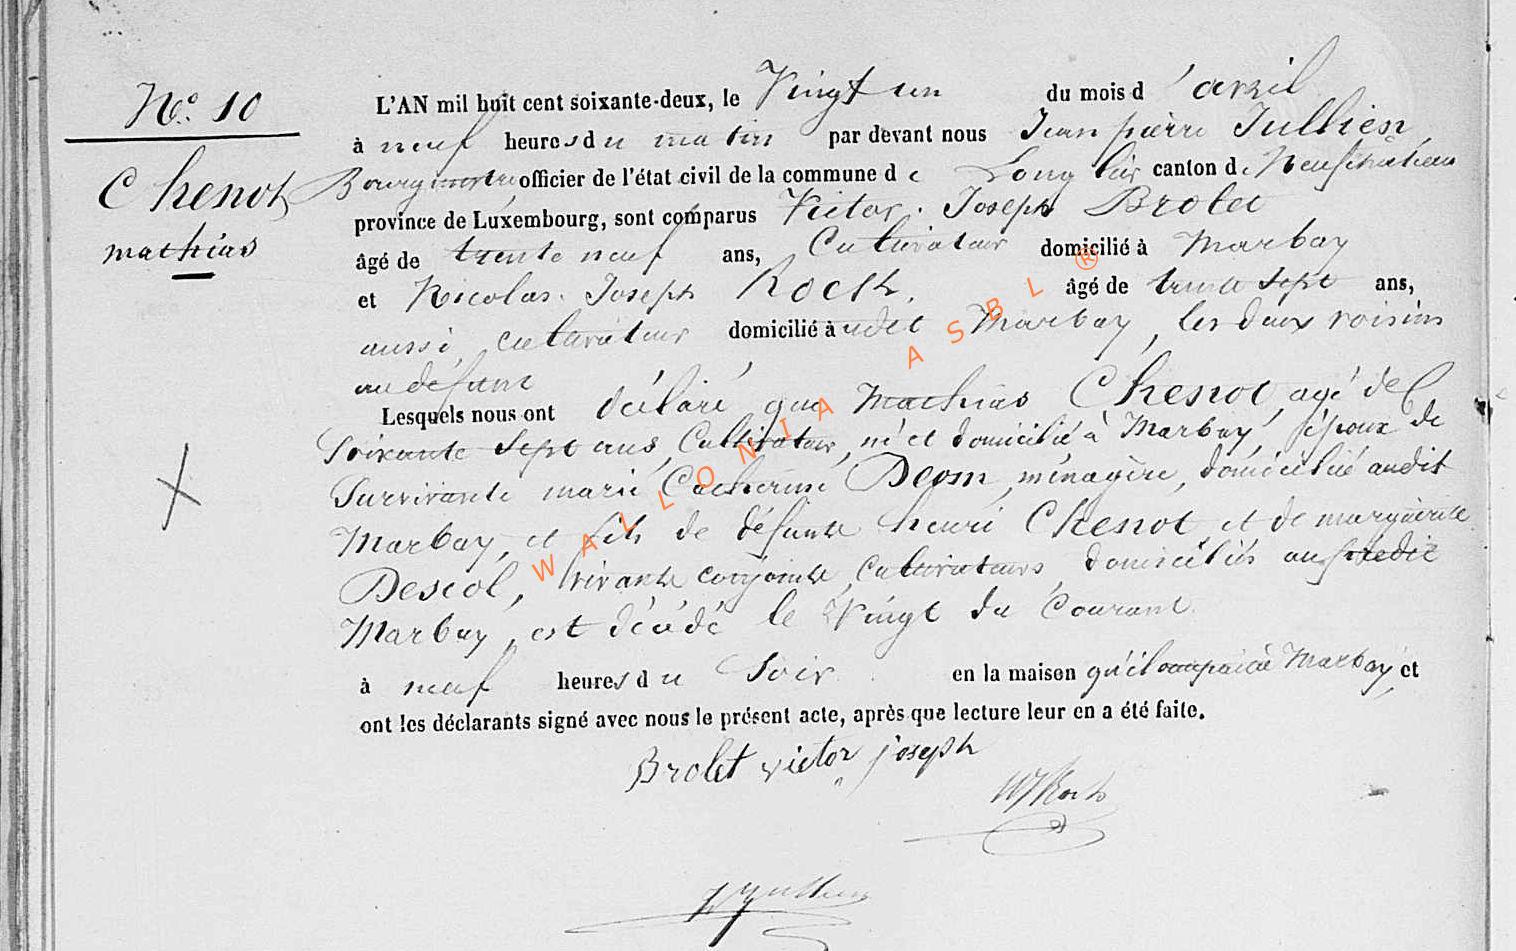 N° 10
Chenot
mathias
L'AN mil huit cent soixante-deux, le Vingt un du mois d'avril
à neuf heures du matin par devant nous Jean pierre Jullien
Bourgmestre officier de l'état civil de la commune de Longlier canton de Neufchâteau
province de Luxembourg, sont comparus Victor Joseph Brolet
âgé de trente neuf ans, Cultivateur domicilié à Marbay
et Nicolas Joseph Roch, âgé de trente sept ans,
aussi cultivateur domicilié à udit Marbay, les deux voisins
au défunt
Lesquels nous ont déclaré que Mathias Chenot, agé de
Soixante Sept ans, Cultivateur, né et domicilié à Marbay, époux de
Survivante marie Catherine Deom, ménagère, domiciliée audit
Marbay, et fils de défunts henri Chenot et de marguerite
Descol, vivants conjoints, Cultivateurs, domiciliés au susdit
Marbay, est décédé le Vingt du Courant
à neuf heures du Soir en la maison qu'il occupait à Marbay, et
ont les déclarants signé avec nous le présent acte, après que lecture leur en a été faite.
Brolet victor joseph
NJ Roch
JP Jullien
WALLONIA ASBL ®